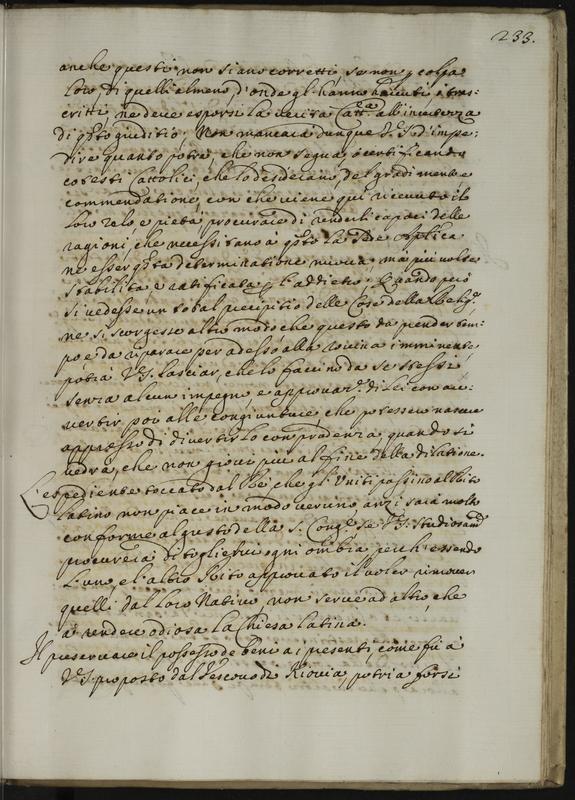 233.
anche questi non siano corretti, se non p colpa
loro, di quelli almeno, d'onde gl'hanno havuti, ò tras:
critti, ne deve esporsi la verità Catt.ca all'incertezza
di q.sto giuditio; Non mancarà dunque V.S. d'impe:
dire quanto potrà, che non segua, ò certificando
cotesti Cattolici, che lo desiderano, del gradimento e
commendatione, con che viene qui ricevuto il
loro zelo, e pietà procurare di renderli capaci delle
ragioni, che necessitano à q.sto la Sede Aplica
ne esser q.sta determinatione nuova, mà più volte
stabilita, e ratificata p l'addietro; Quando però
si vedesse un total precipitio delle Cose della Relig.e
ne si scorgesse altro modo che questo da prender tem:
po e da riparare per adesso alla rovina imminente
potrà V.S. lasciar, che lo faccino da se stessi
senza alcun impegno e approvat.ne di lei con av:
vertir poi alle congiunture, che potessero nascere
appresso di divertirlo con prudenza, quando si
vedrà, che non giovi più al fine della dilatione.
L'espediente toccato dal Rè che gl'Uniti passino al Rito
latino non piace in modo veruno, anzi sarà molto
conforme al gusto della S. Cong.e se V.S. studiosam.te
procurerà di toglier vi ogni ombra, perche essendo
l'uno, e l'altro Rito approvato il voler rimover
quelli dal loro Nativo, non serve ad altro, che
a rendere odiosa la Chiesa latina.
Il preservare il possesso de beni ai presenti, come fù à
V.S. proposto dal Vescovo di Kiovia, potria forsi